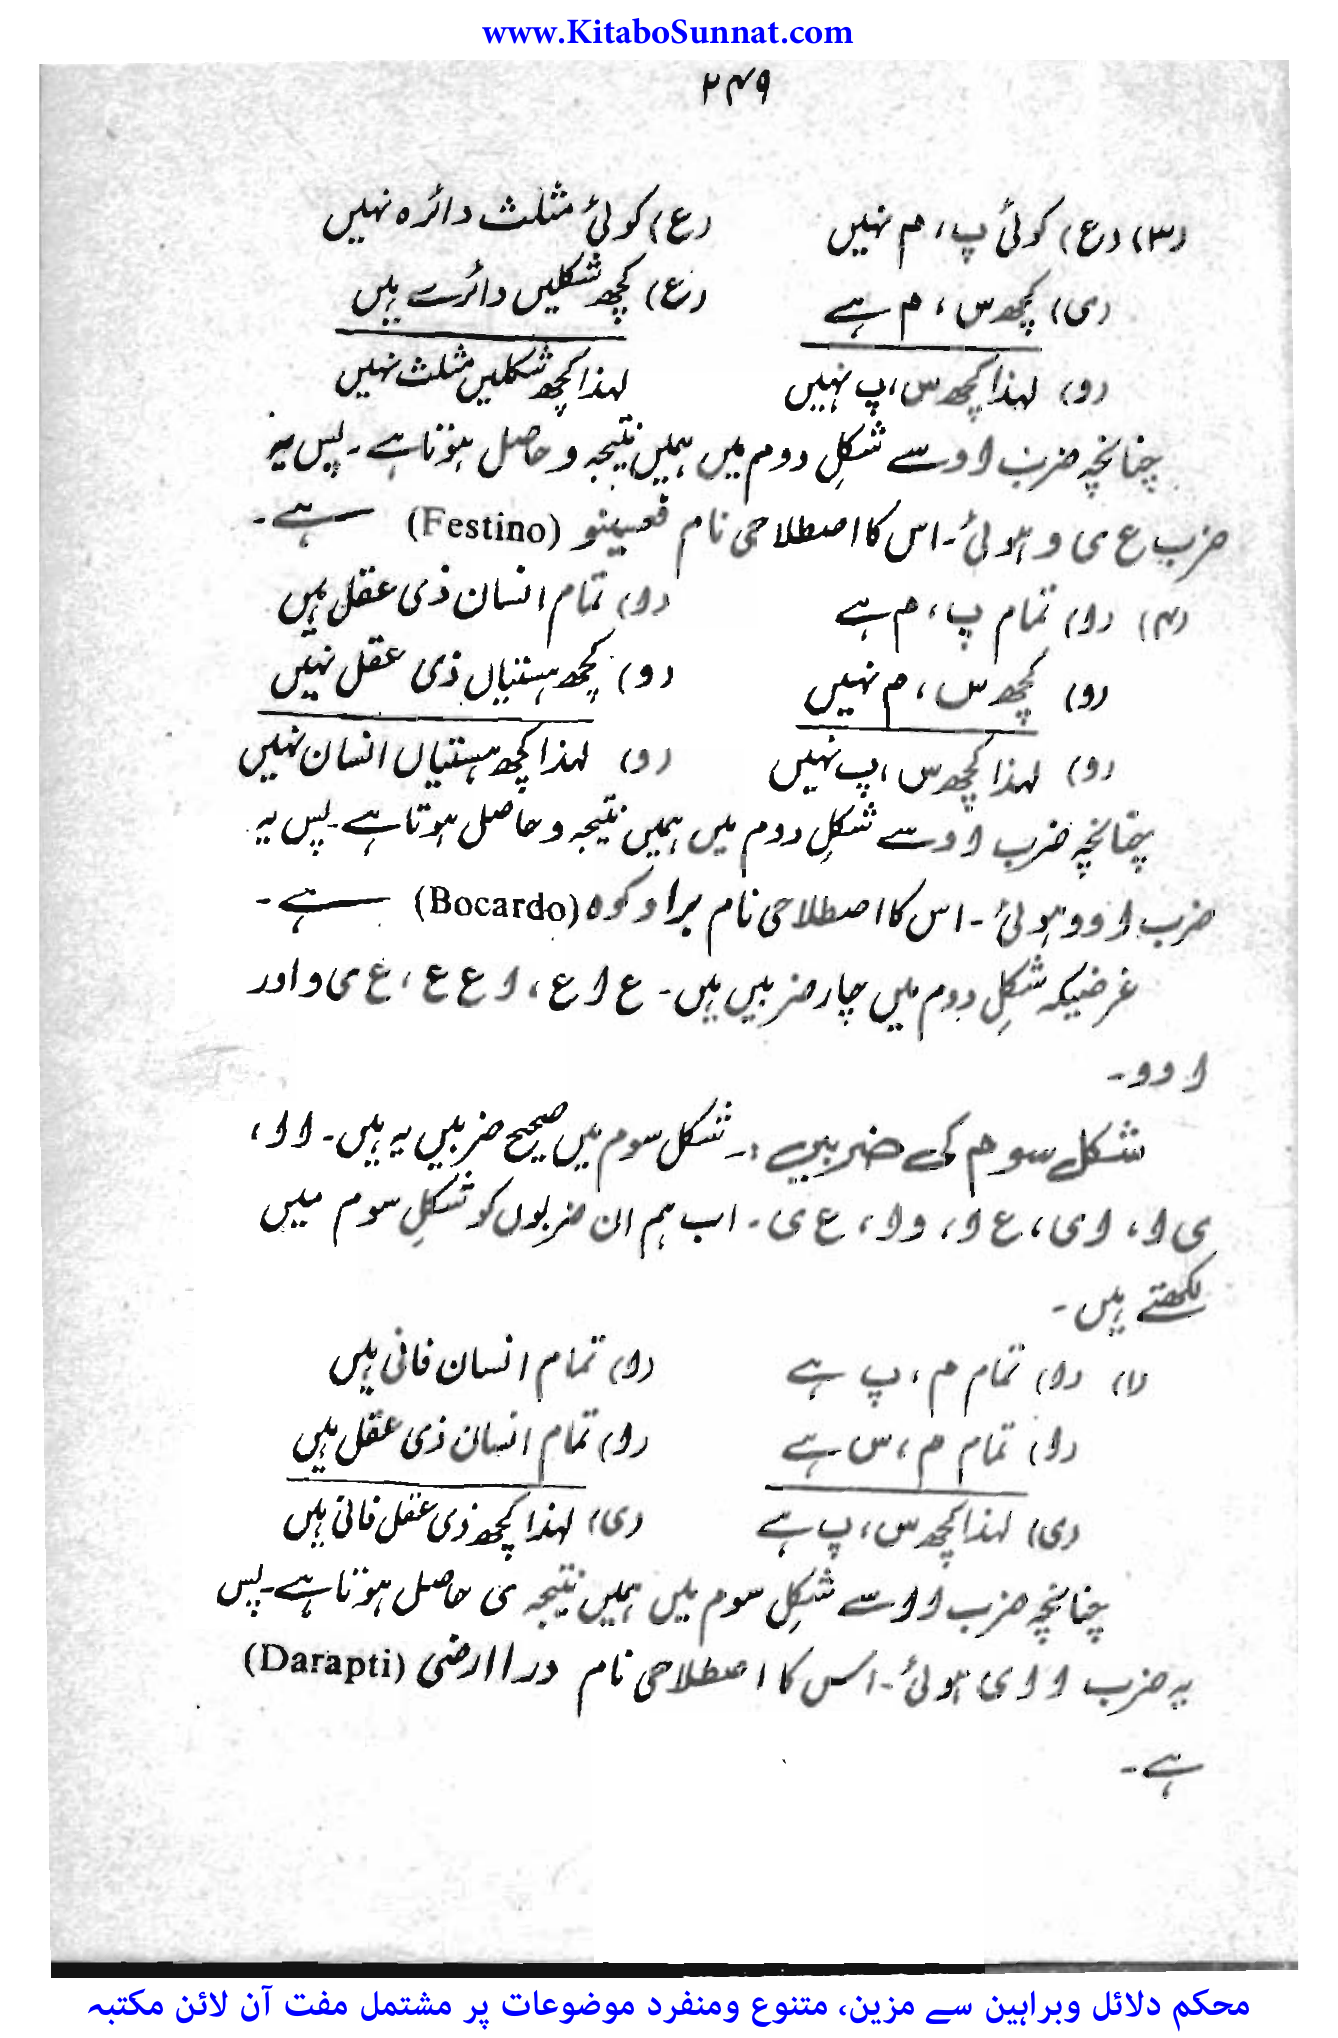 www.KitaboSunnat.com
۲۴۹
(۳) (ع) کوئی پ، م نہیں (ع) کوئی مثلث دائرہ نہیں
(ی) کچھ س، م ہے (ع) کچھ شکلیں دائرے ہیں
(و) لہذا کچھ س، پ نہیں لہذا کچھ شکلیں مثلث نہیں
چنانچہ ضرب ا و سے شکلِ دوم میں ہمیں نتیجہ و حاصل ہوتا ہے۔ پس یہ
ضرب ع ی و ہوئی۔ اس کا اصطلاحی نام فسینو (Festino) ہے۔
(۴) (ا) تمام پ، م ہے (ا) تمام انسان ذی عقل ہیں
(و) کچھ س، م نہیں (و) کچھ ہستیاں ذی عقل نہیں
(و) لہذا کچھ س، پ نہیں (و) لہذا کچھ ہستیاں انسان نہیں
چنانچہ ضرب ا و سے شکلِ دوم میں ہمیں نتیجہ و حاصل ہوتا ہے۔ پس یہ
ضرب ا و و ہوئی۔ اس کا اصطلاحی نام براوکوہ (Bocardo) ہے۔
غرضیکہ شکلِ دوم میں چار ضربیں ہیں۔ ع ا ع، ا ع ع، ع ی و اور
ا و و۔
شکل سوم کی ضربیں :۔ شکل سوم میں صحیح ضربیں یہ ہیں۔ ا ا،
ی ا، ا ی، ع ا، و ا، ع ی۔ اب ہم ان ضربوں کو شکلِ سوم میں
لکھتے ہیں۔
(۱) (ا) تمام م، پ ہے (ا) تمام انسان فانی ہیں
(ا) تمام م، س ہے (ا) تمام انسان ذی عقل ہیں
(ی) لہذا کچھ س، پ ہے (ی) لہذا کچھ ذی عقل فانی ہیں
چنانچہ ضرب ا ا سے شکلِ سوم میں ہمیں نتیجہ ی حاصل ہوتا ہے۔ پس
یہ ضرب ا ا ی ہوئی۔ اس کا اصطلاحی نام درا ارضی (Darapti)
ہے۔
محکم دلائل وبراہین سے مزین، متنوع ومنفرد موضوعات پر مشتمل مفت آن لائن مکتبہ